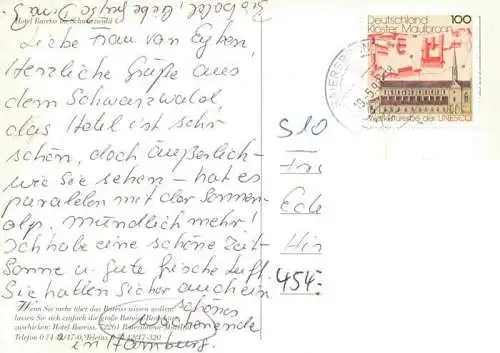 Hotel Bareiss im Schwarzwald
Liebe Frau van Eyken,
Herzliche Grüße aus
dem Schwarzwald,
das Hotel ist sehr
schön, doch äußerlich –
wie Sie sehen – hat es
paralelen mit der Sonnen-
alp. Mündlich mehr!
Ich habe eine schöne Zeit
Sonne u. gute frische Luft.
Sie hatten sicher auch ein
schönes
Wochenende
in Hamburg.
Wenn Sie mehr über das Bareiss wissen wollen,
lassen Sie sich einfach die große Bareiss
zuschicken. Hotel Bareiss, 72261 Baiersbronn-Mitteltal
Telefon 0 74 42/47-0, Telefax 0 74 42/47-320
Deutschland 100
Kloster Maulbronn
Weltkulturerbe der UNESCO
S10
454-